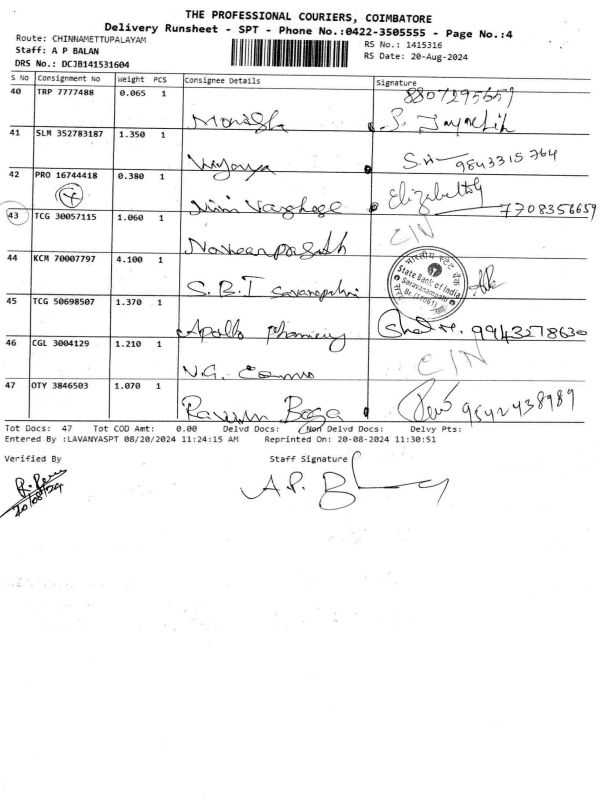 THE PROFESSIONAL COURIERS, COIMBATORE
Delivery Runsheet - SPT - Phone No.:0422-3505555 - Page No.:4
Route: CHINNAMETTUPALAYAM
Staff: A P BALAN
DRS No.: DCJB141531604
RS No.: 1415316
RS Date: 20-Aug-2024
S No Consignment No Weight PCS Consignee Details Signature
40 TRP 7777488 0.065 1
8807295657
41 SLM 352783187 1.350 1
S.H 9843315764
42 PRO 16744418 0.380 1
Nini Varghese
7708356659
43 TCG 30057115 1.060 1
C/N
44 KCM 70007797 4.100 1
State Bank of India
Saravanampatti
S.B.I
45 TCG 50698507 1.370 1
Apollo Phamicy
9943278630
46 CGL 3004129 1.210 1
C/N
V.G.
47 OTY 3846503 1.070 1
9542438989
Tot Docs: 47 Tot COD Amt: 0.00 Delvd Docs: Non Delvd Docs: Delvy Pts:
Entered By :LAVANYASPT 08/20/2024 11:24:15 AM Reprinted On: 20-08-2024 11:30:51
Verified By
Staff Signature
20/08/24
A.P.